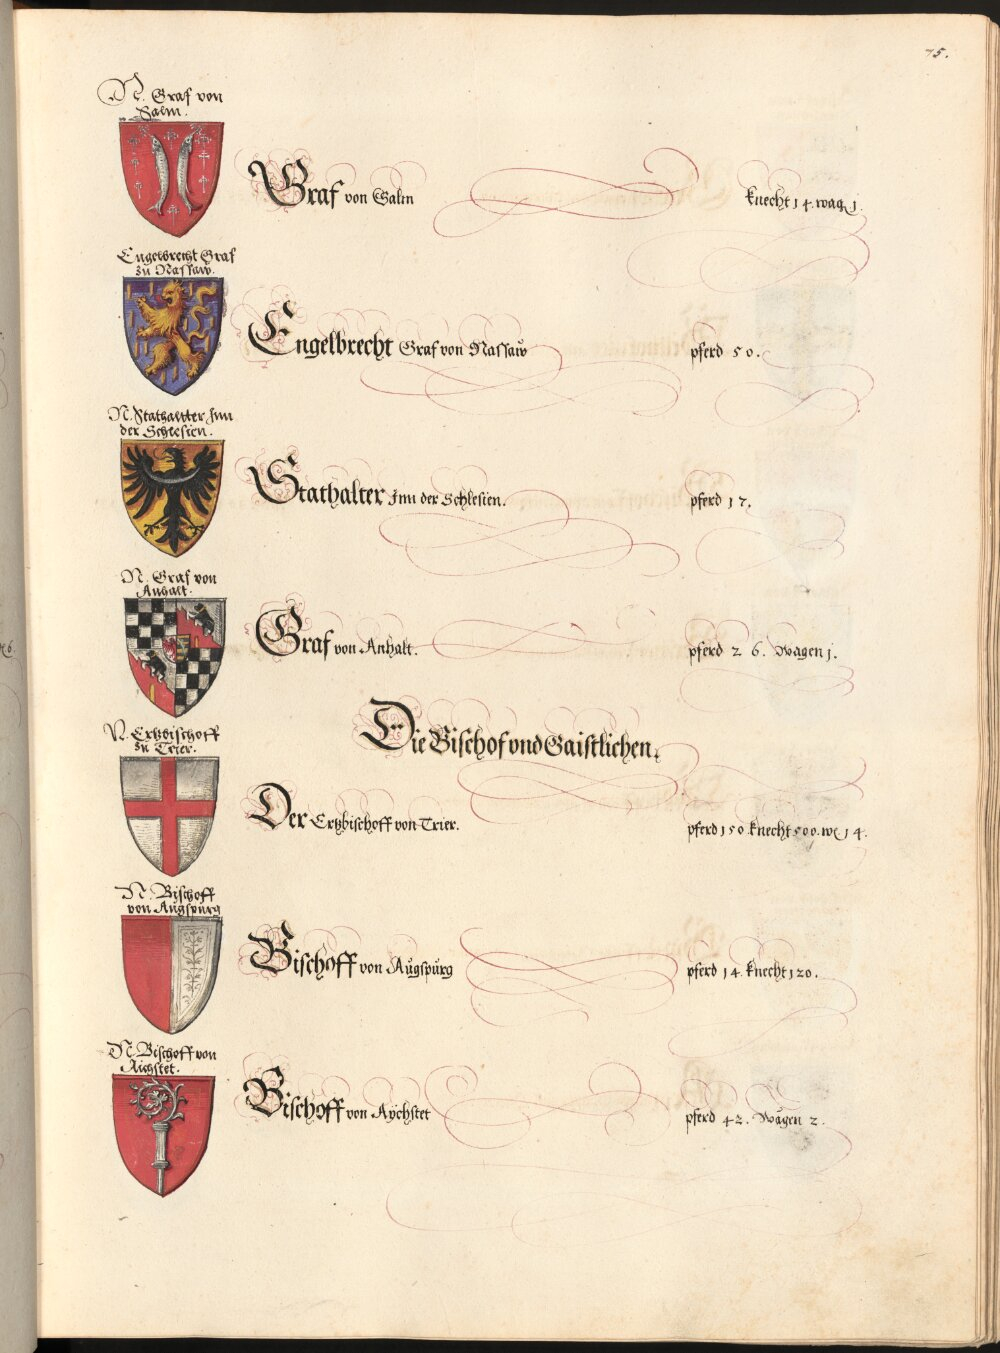 75.
N. Graf von
Salm.
Graf von Salm
knecht 14. wag 1.
Engelbrecht Graf
zu Nassaw.
Engelbrecht Graf von Nassaw
pferd 50.
N. Stathaltter Inn
der Schlesien.
Stathalter Inn der Schlesien.
pferd 17.
N. Graf von
Anhalt.
Graf von Anhalt.
pferd 26. Wagen 1.
Die Bischof vnd Gaistlichen.
N. Ertzbischoff
zu Trier.
Der Ertzbischoff von Trier.
pferd 150 knecht 500. w 14.
N. Bischoff
von Augspurg
Bischoff von Augspurg
pferd 14. knecht 120.
N. Bischoff von
Aichstet.
Bischoff von Aychstet
pferd 42. Wagen 2.